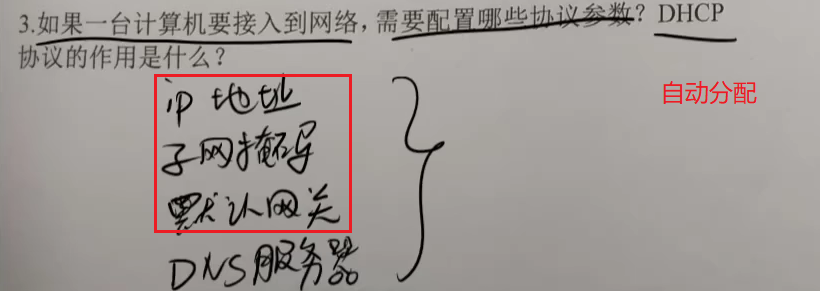 3.如果一台计算机要接入到网络，需要配置哪些协议参数？DHCP
协议的作用是什么？
ip 地址
自动分配
子网掩码
默认网关
DNS服务器